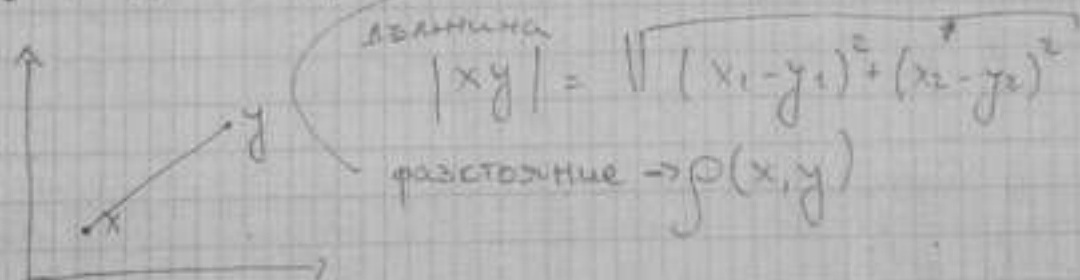 дължина
|xy| = √(x₁-y₁)² + (x₂-y₂)²
y
разстояние → ρ(x,y)
x